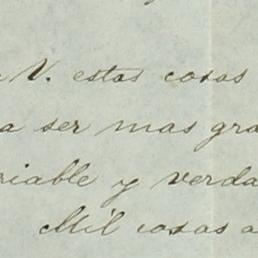 V. estas cosas
a ser mas gra
riable y verda
Mil cosas a